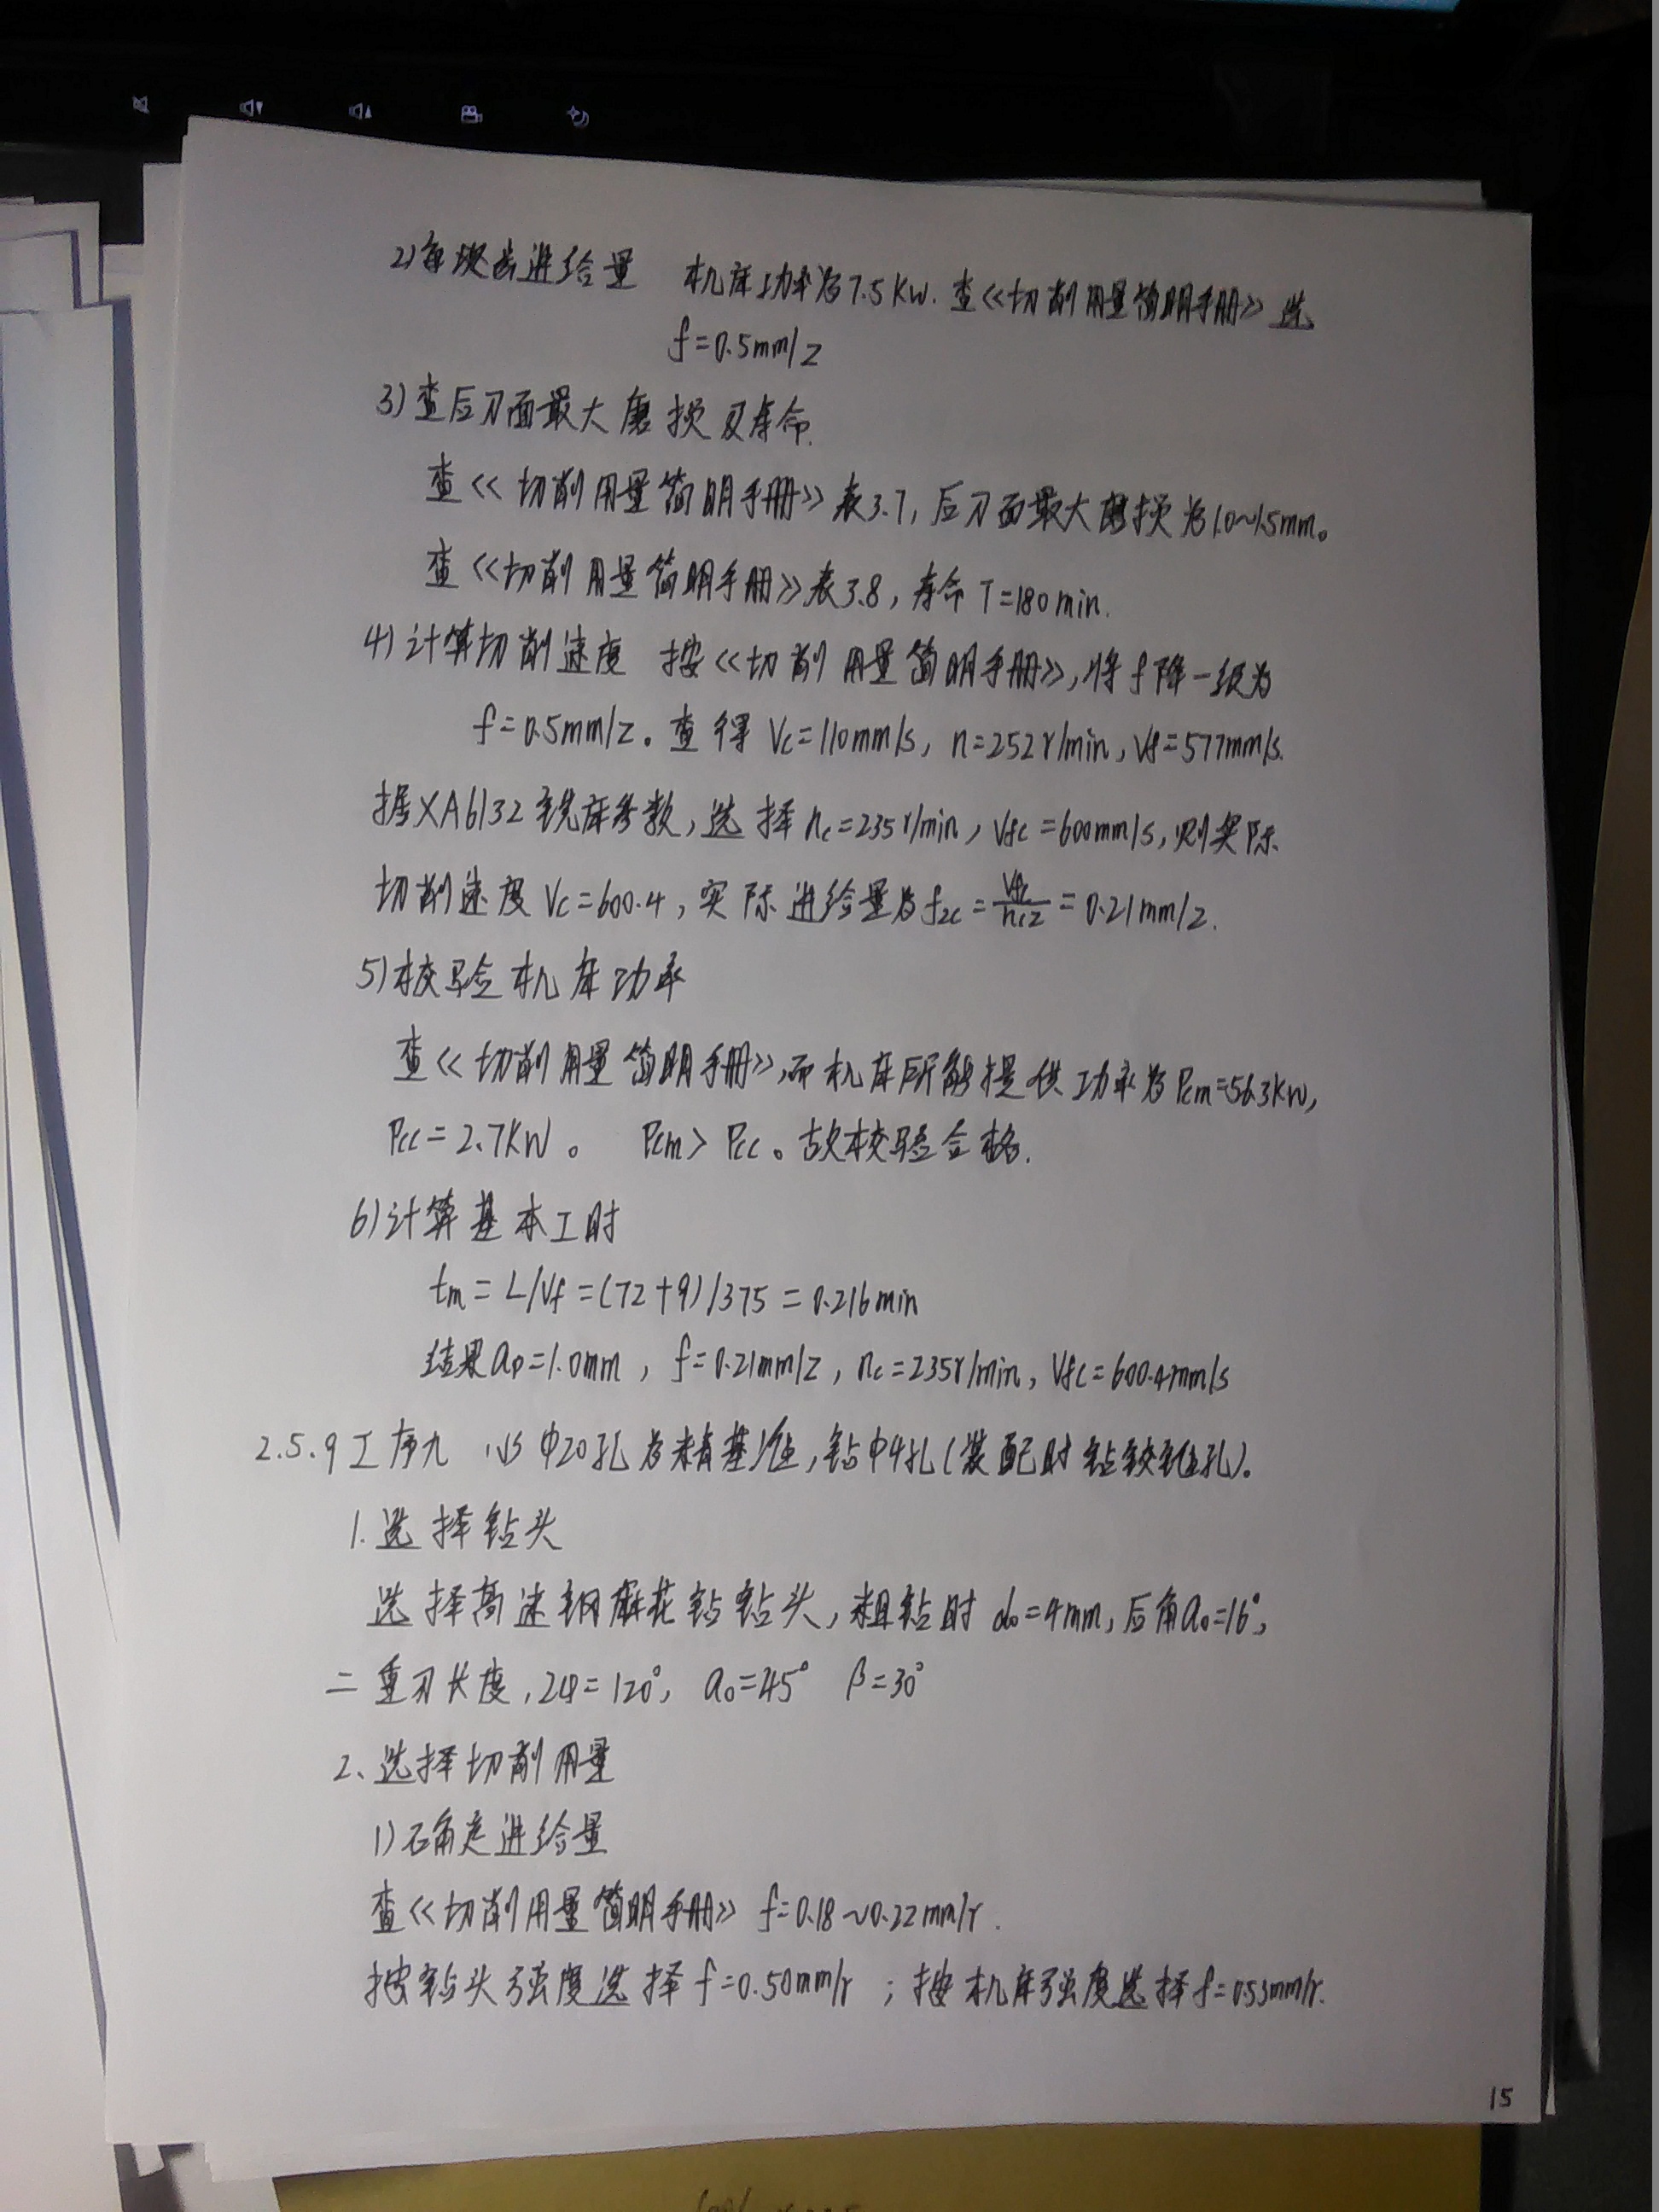 2)每块齿进给量 机床功率为7.5KW.查《切削用量简明手册》选
f=0.5mm/z
3)查后刀面最大磨损及寿命.
查《切削用量简明手册》表3.7,后刀面最大磨损为1.0~1.5mm。
查《切削用量简明手册》表3.8,寿命T=180min.
4)计算切削速度 按《切削用量简明手册》,将f降一级为
f=0.5mm/z。查得Vc=110mm/s,n=252r/min,Vf=577mm/s.
据XA6132铣床参数,选择nc=235r/min,Vfc=600mm/s,则实际
切削速度Vc=600.4,实际进给量为fzc=Vfc/ncz=0.21mm/z.
5)校验机床功率
查《切削用量简明手册》,而机床所能提供功率为Pcm=56.3KW,
Pcc=2.7KW。 Pcm>Pcc。故校验合格.
6)计算基本工时
tm=L/Vf=(72+9)/375=0.216min
结果ap=1.0mm,f=0.21mm/z,nc=235r/min,Vfc=600.4mm/s
2.5.9工序九 以Φ20孔为精基准,钻Φ4孔(装配时钻铰锥孔)。
1.选择钻头
选择高速钢麻花钻钻头,粗钻时do=4mm,后角ao=16°,
二重刃长度,2φ=120°, ao=45° β=30°
2、选择切削用量
1)确定进给量
查《切削用量简明手册》 f=0.18~0.22mm/r.
按钻头强度选择f=0.50mm/r ;按机床强度选择f=0.53mm/r.
15